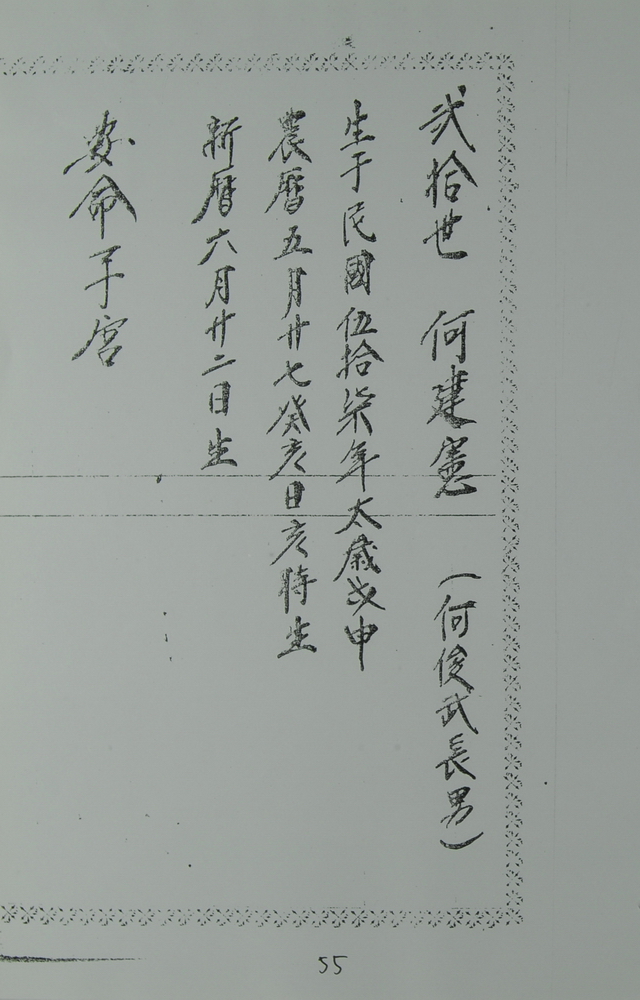 弍拾世　何建憲　（何俊武長男）
生于民國伍拾柒年太歲戊申
農曆五月廿七癸亥日亥時生
新曆六月廿二日生
安命子宮
55